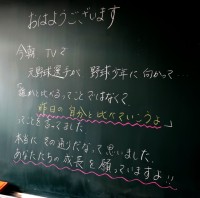 おはようございます
今朝 TVで
元野球選手が 野球少年に 向かって…
「誰かと比べるってことではなくて、
昨日の自分と比べていこうよ」
ってことを言ってました。
本当に その通りだなって思いました。
あなたたちの成長を願っていますよ!!